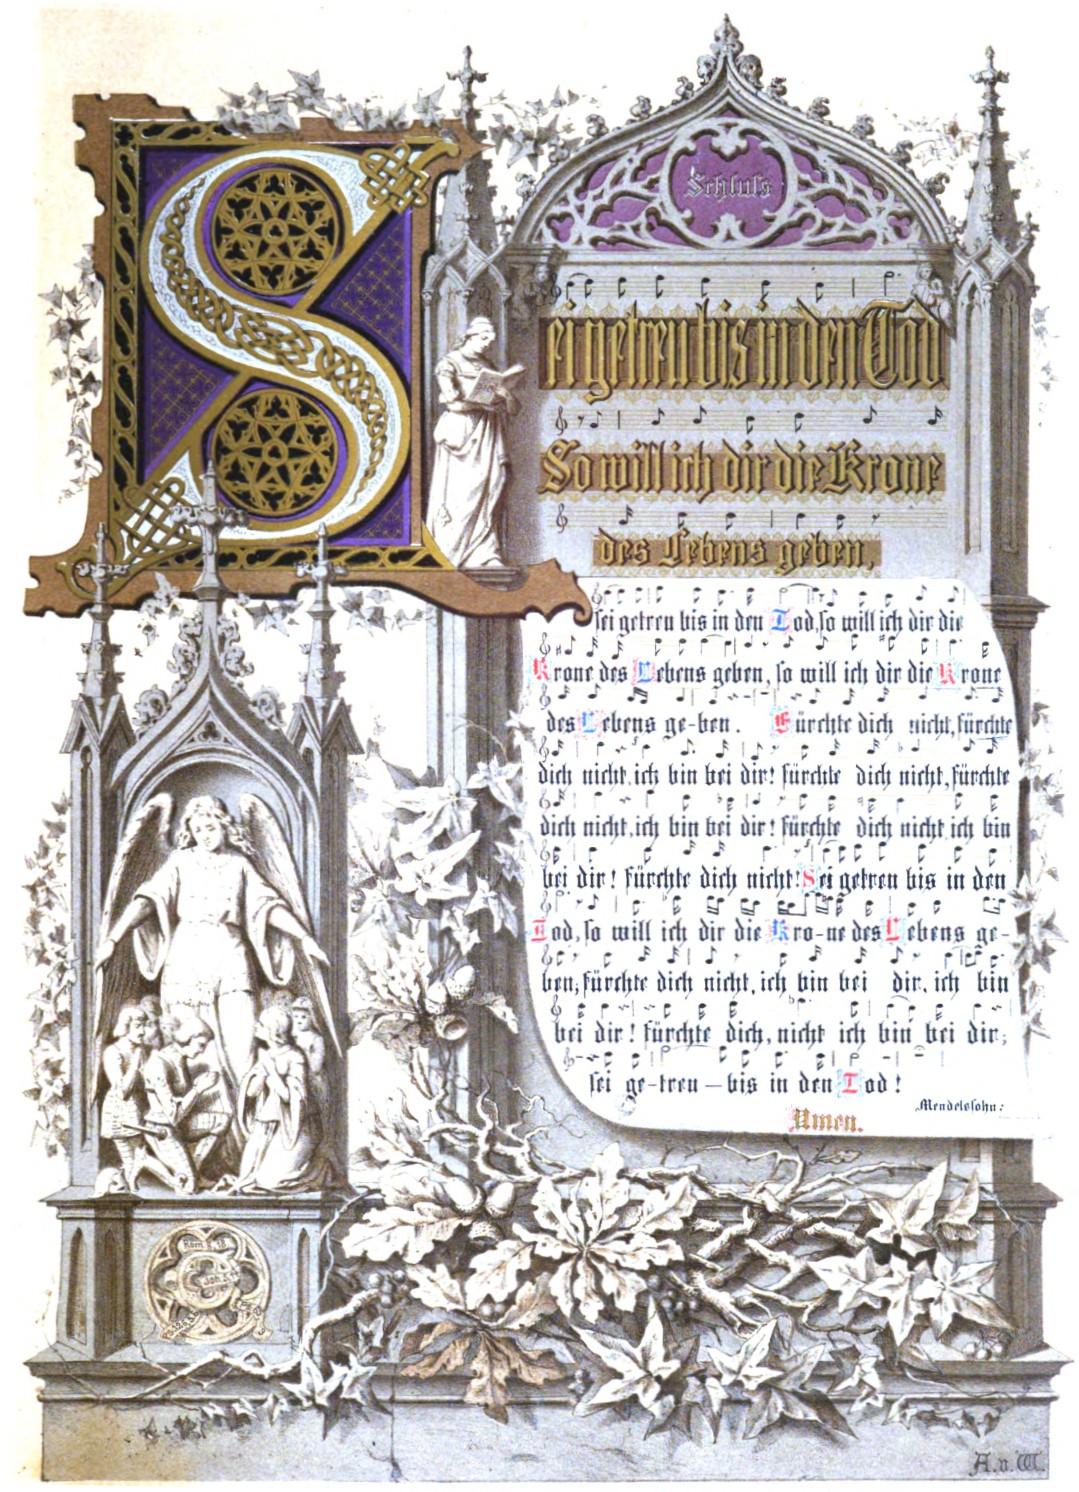 Schluſs
Sei getreu bis in den Tod
So will ich dir die Krone
des Lebens geben,
ſei getreu bis in den Tod, ſo will ich dir die
Krone des Lebens geben, ſo will ich dir die Krone
des Lebens ge-ben. Fürchte dich nicht, fürchte
dich nicht, ich bin bei dir! fürchte dich nicht, fürchte
dich nicht, ich bin bei dir! fürchte dich nicht ich bin
bei dir! fürchte dich nicht! Sei getreu bis in den
Tod, ſo will ich dir die Kro-ne des Lebens ge-
ben, fürchte dich nicht, ich bin bei dir, ich bin
bei dir! fürchte dich, nicht ich bin bei dir;
ſei ge-treu – bis in den Tod!
Mendelsſohn:
Amen.
A. v. W.